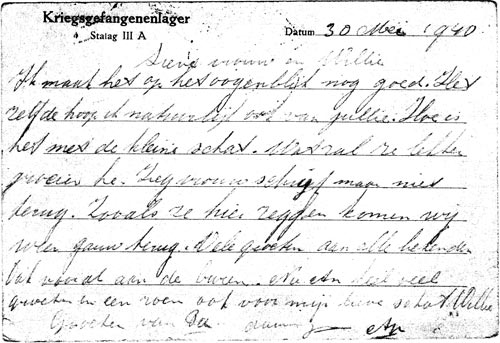 Kriegsgefangenenlager
Stalag III A
Datum 30 Mei 1940
Lieve vrouw en Willie
Ik maak het op het oogenblik nog goed. Het
zelfde hoop ik natuurlijk ook van jullie. Hoe is
het met de kleine schat. Wat zal ze lekker
groeien he. Zeg vrouw schrijf maar niet
terug. Zooals ze hier zeggen komen wij
weer gauw terug. Vele groeten aan alle bekenden
vooral aan de Nu An veel
groeten en een zoen ook voor mijn lieve schat Willie
Groeten van An